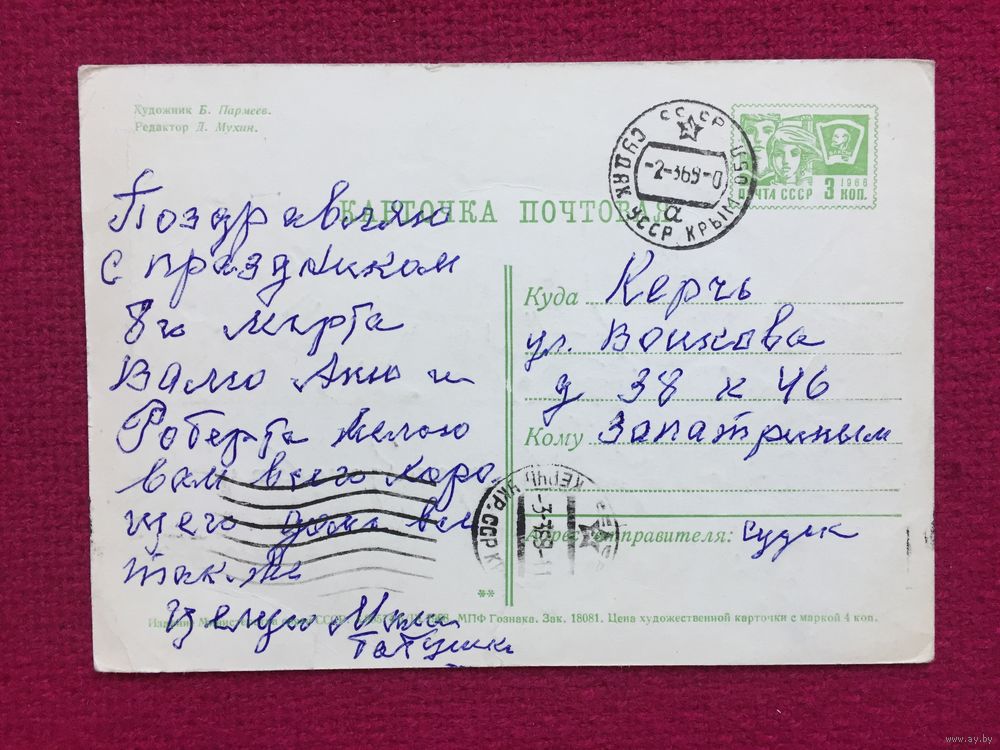 Художник Б. Пармеев.
Редактор Д. Мухин.
КАРТОЧКА ПОЧТОВАЯ
СССР
СУДАК УССР КРЫМ. ОБЛ
-2-369-0
а
ПОЧТА СССР
1966
3 КОП.
Поздравляю
с праздником
8го марта
Валю Аню и
Роберта Желаю
вам всего хоро
шего дома все
так-же
Целую
Куда Керчь
ул. Воикова
д 38 к 46
Кому Запатриным
Адрес отправителя: Судак
КЕРЧЬ УКР. ССР
-3-369-11
**
МПФ Гознака. Зак. 18081. Цена художественной карточки с маркой 4 коп.
www.ay.by